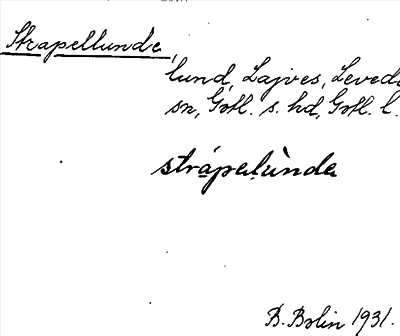 Strapellunde,
lund, Lajves, Levede
sn, Gotl. s. hd, Gotl. l.
strápalùnda
B. Bolin 1931.